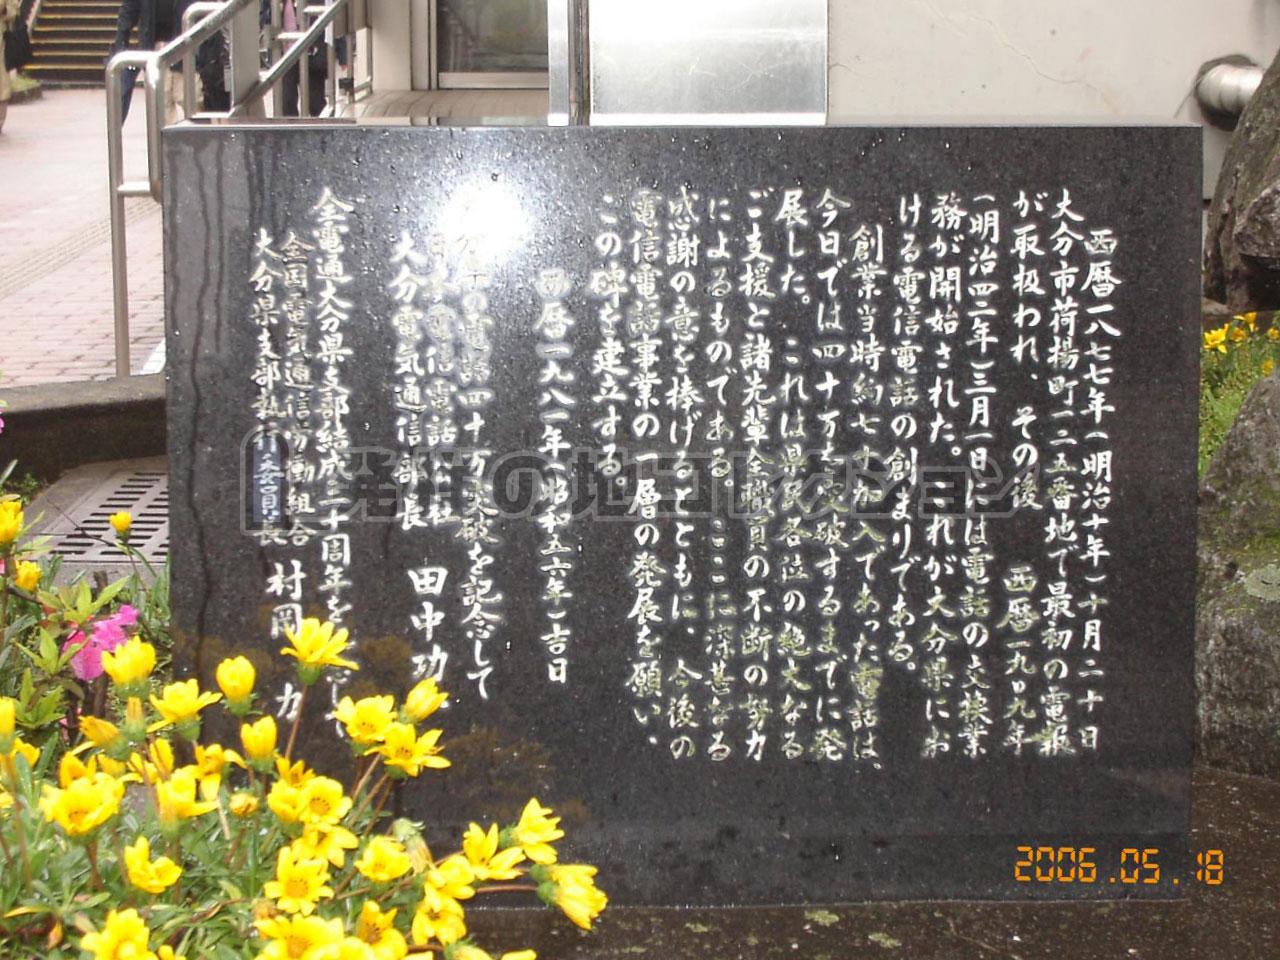 西暦一八七七年(明治十年)十月二十日
大分市荷揚町一二五番地で最初の電報
が取扱われ、その後 西暦一九〇九年
(明治四二年)三月一日には電話の交換業
務が開始された。これが大分県にお
ける電信電話の創まりである。
創業当時約七十加入であった電話は、
今日では四十万を突破するまでに発
展した。これは県民各位の絶大なる
ご支援と諸先輩全職員の不断の努力
によるものである。ここに深甚なる
感謝の意を捧げるとともに、今後の
電信電話事業の一層の発展を願い、
この碑を建立する。
西暦一九八一年(昭和五六年)吉日
の電話四十万突破を記念して
日本電信電話公社
大分電気通信部長 田中功
全電通大分県支部結成三十周年を
全国電気通信労働組合
大分県支部執行委員長 村岡 力
発祥の地コレクション
2006.05.18